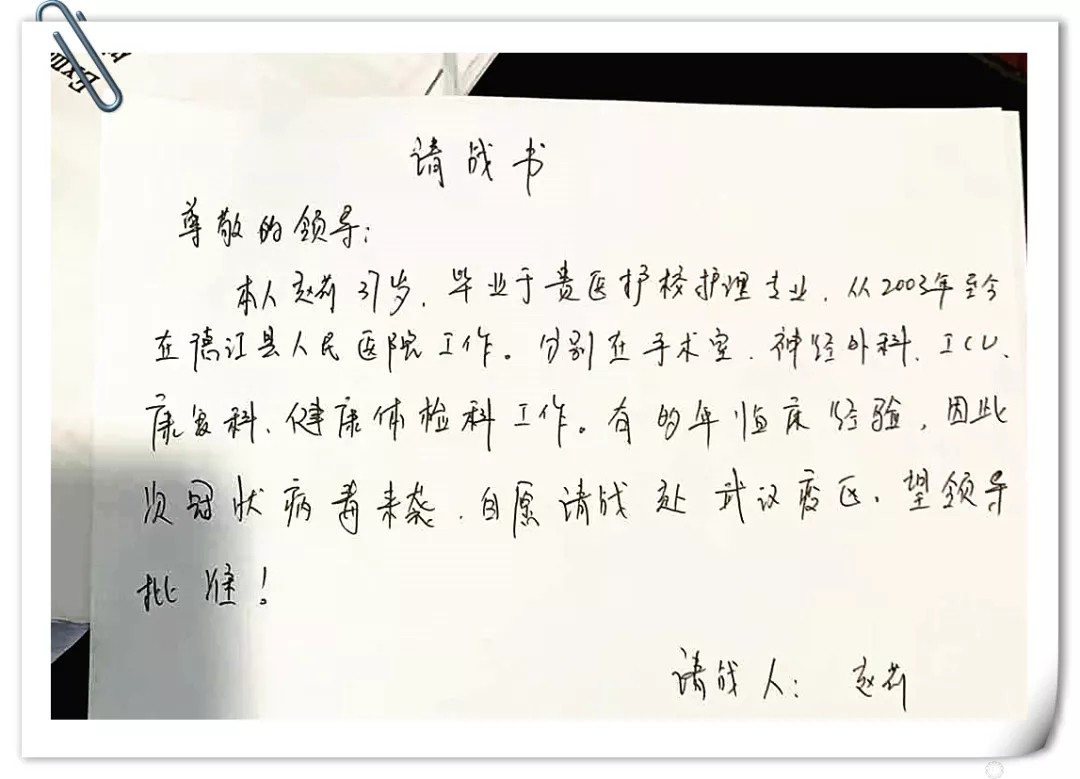 请战书
尊敬的领导:
本人赵莉37岁,毕业于贵医护校护理专业,从2003年至今
在德江县人民医院工作。分别在手术室、神经外科、ICU、
康复科、健康体检科工作。有的年临床经验,因此
次冠状病毒来袭,自愿请战赴武汉疫区,望领导
批准!
请战人:赵莉